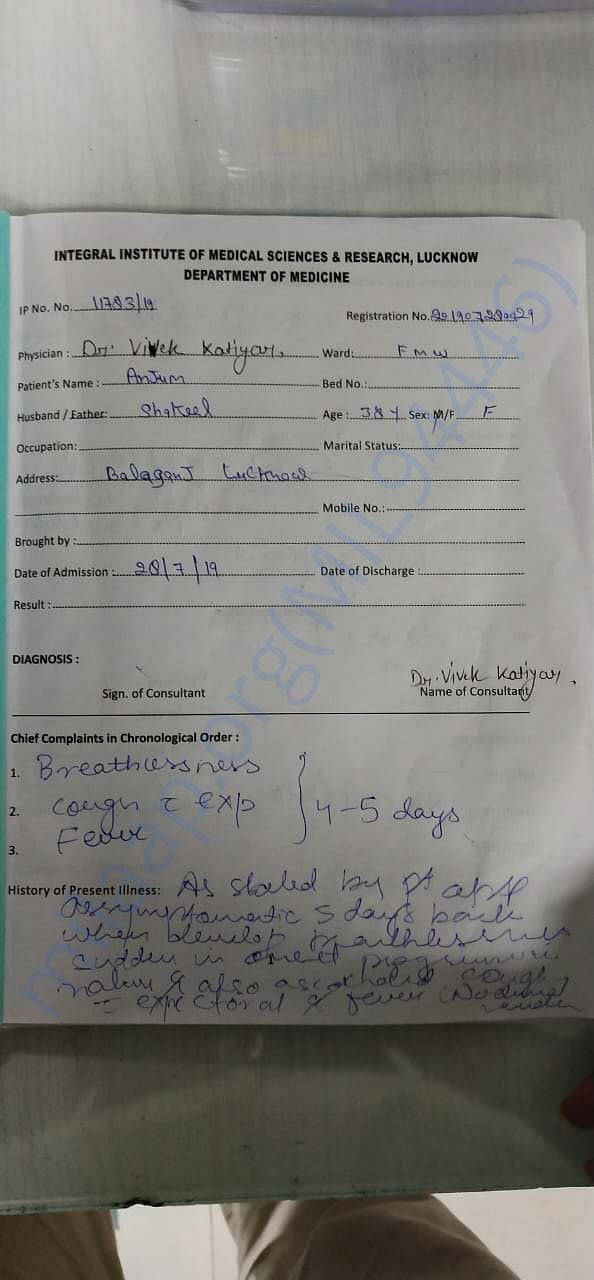 INTEGRAL INSTITUTE OF MEDICAL SCIENCES & RESEARCH, LUCKNOW
DEPARTMENT OF MEDICINE
IP No. No. 11783/19
Registration No.
Physician : Dr. Vivek Katiyar, Ward: FMW
Patient's Name :- Anjum Bed No.:
Husband / Father: Shakeel Age : 38 Y Sex: M/F F
Occupation: Marital Status:
Address: Balaganj Lucknow
Mobile No.:
Brought by :
Date of Admission : 28/7/19 Date of Discharge :
Result :
DIAGNOSIS :
Dr. Vivek Katiyar,
Sign. of Consultant Name of Consultant
Chief Complaints in Chronological Order :
1. Breathlessness
2. Cough c exp } 4-5 days
3. Fever
History of Present Illness: As stated by pt
assymptomatic 5 days back
when develop breathlessness
sudden in onset
nature & also cough
c expectoral & fever (No diurnal
milaap.org(MIL94446)